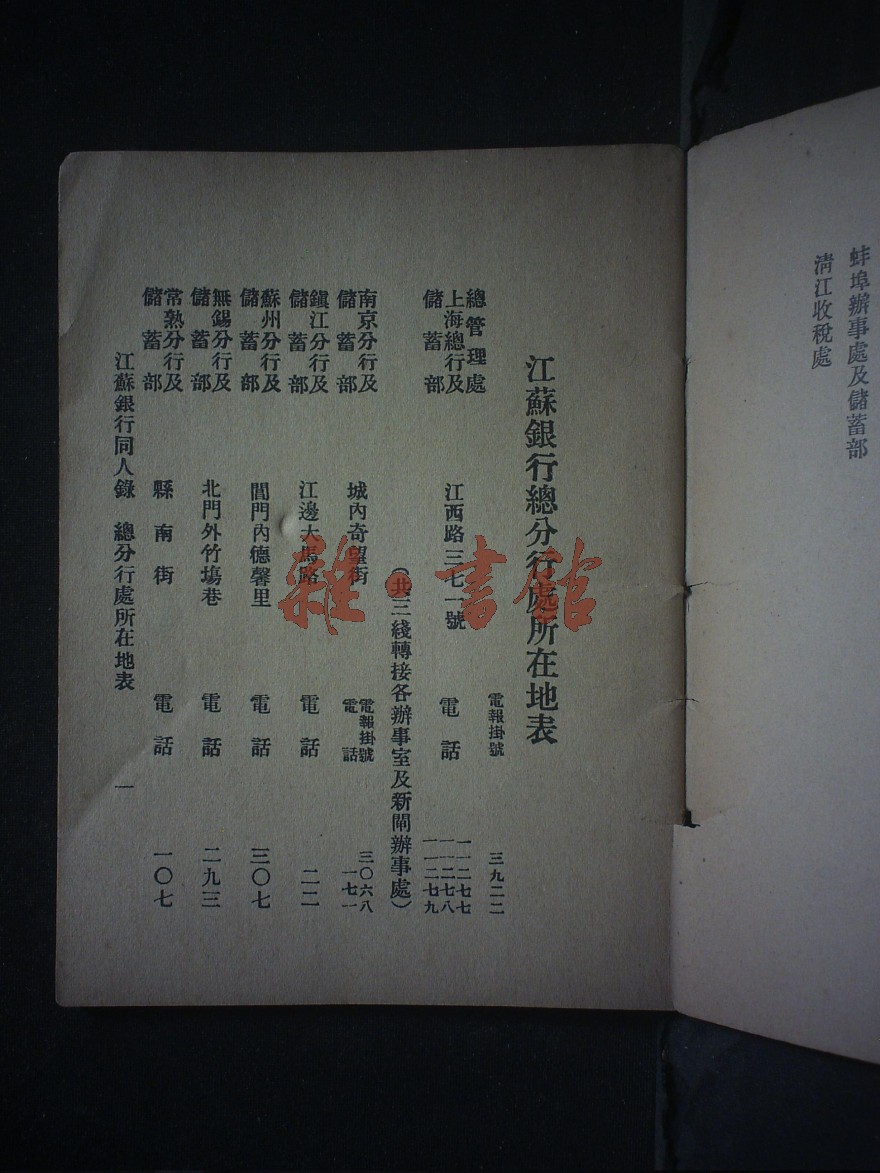 蚌埠辦事處及儲蓄部
淸江收稅處
江蘇銀行總分行處所在地表
電報掛號 三九二二
總管理處
上海總行及
儲蓄部
江西路三七一號 電話
一一二七七
一一二七八
一一二七九
（共三綫轉接各辦事室及新閘辦事處）
南京分行及
儲蓄部
城內奇望街
電報掛號 三〇六八
電話 一七一
鎭江分行及
儲蓄部
江邊大馬路 電話 二二
蘇州分行及
儲蓄部
閶門內德馨里 電話 三〇七
無錫分行及
儲蓄部
北門外竹塲巷 電話 二九三
常熟分行及
儲蓄部
縣南街 電話 一〇七
江蘇銀行同人錄 總分行處所在地表 一
雜·書館